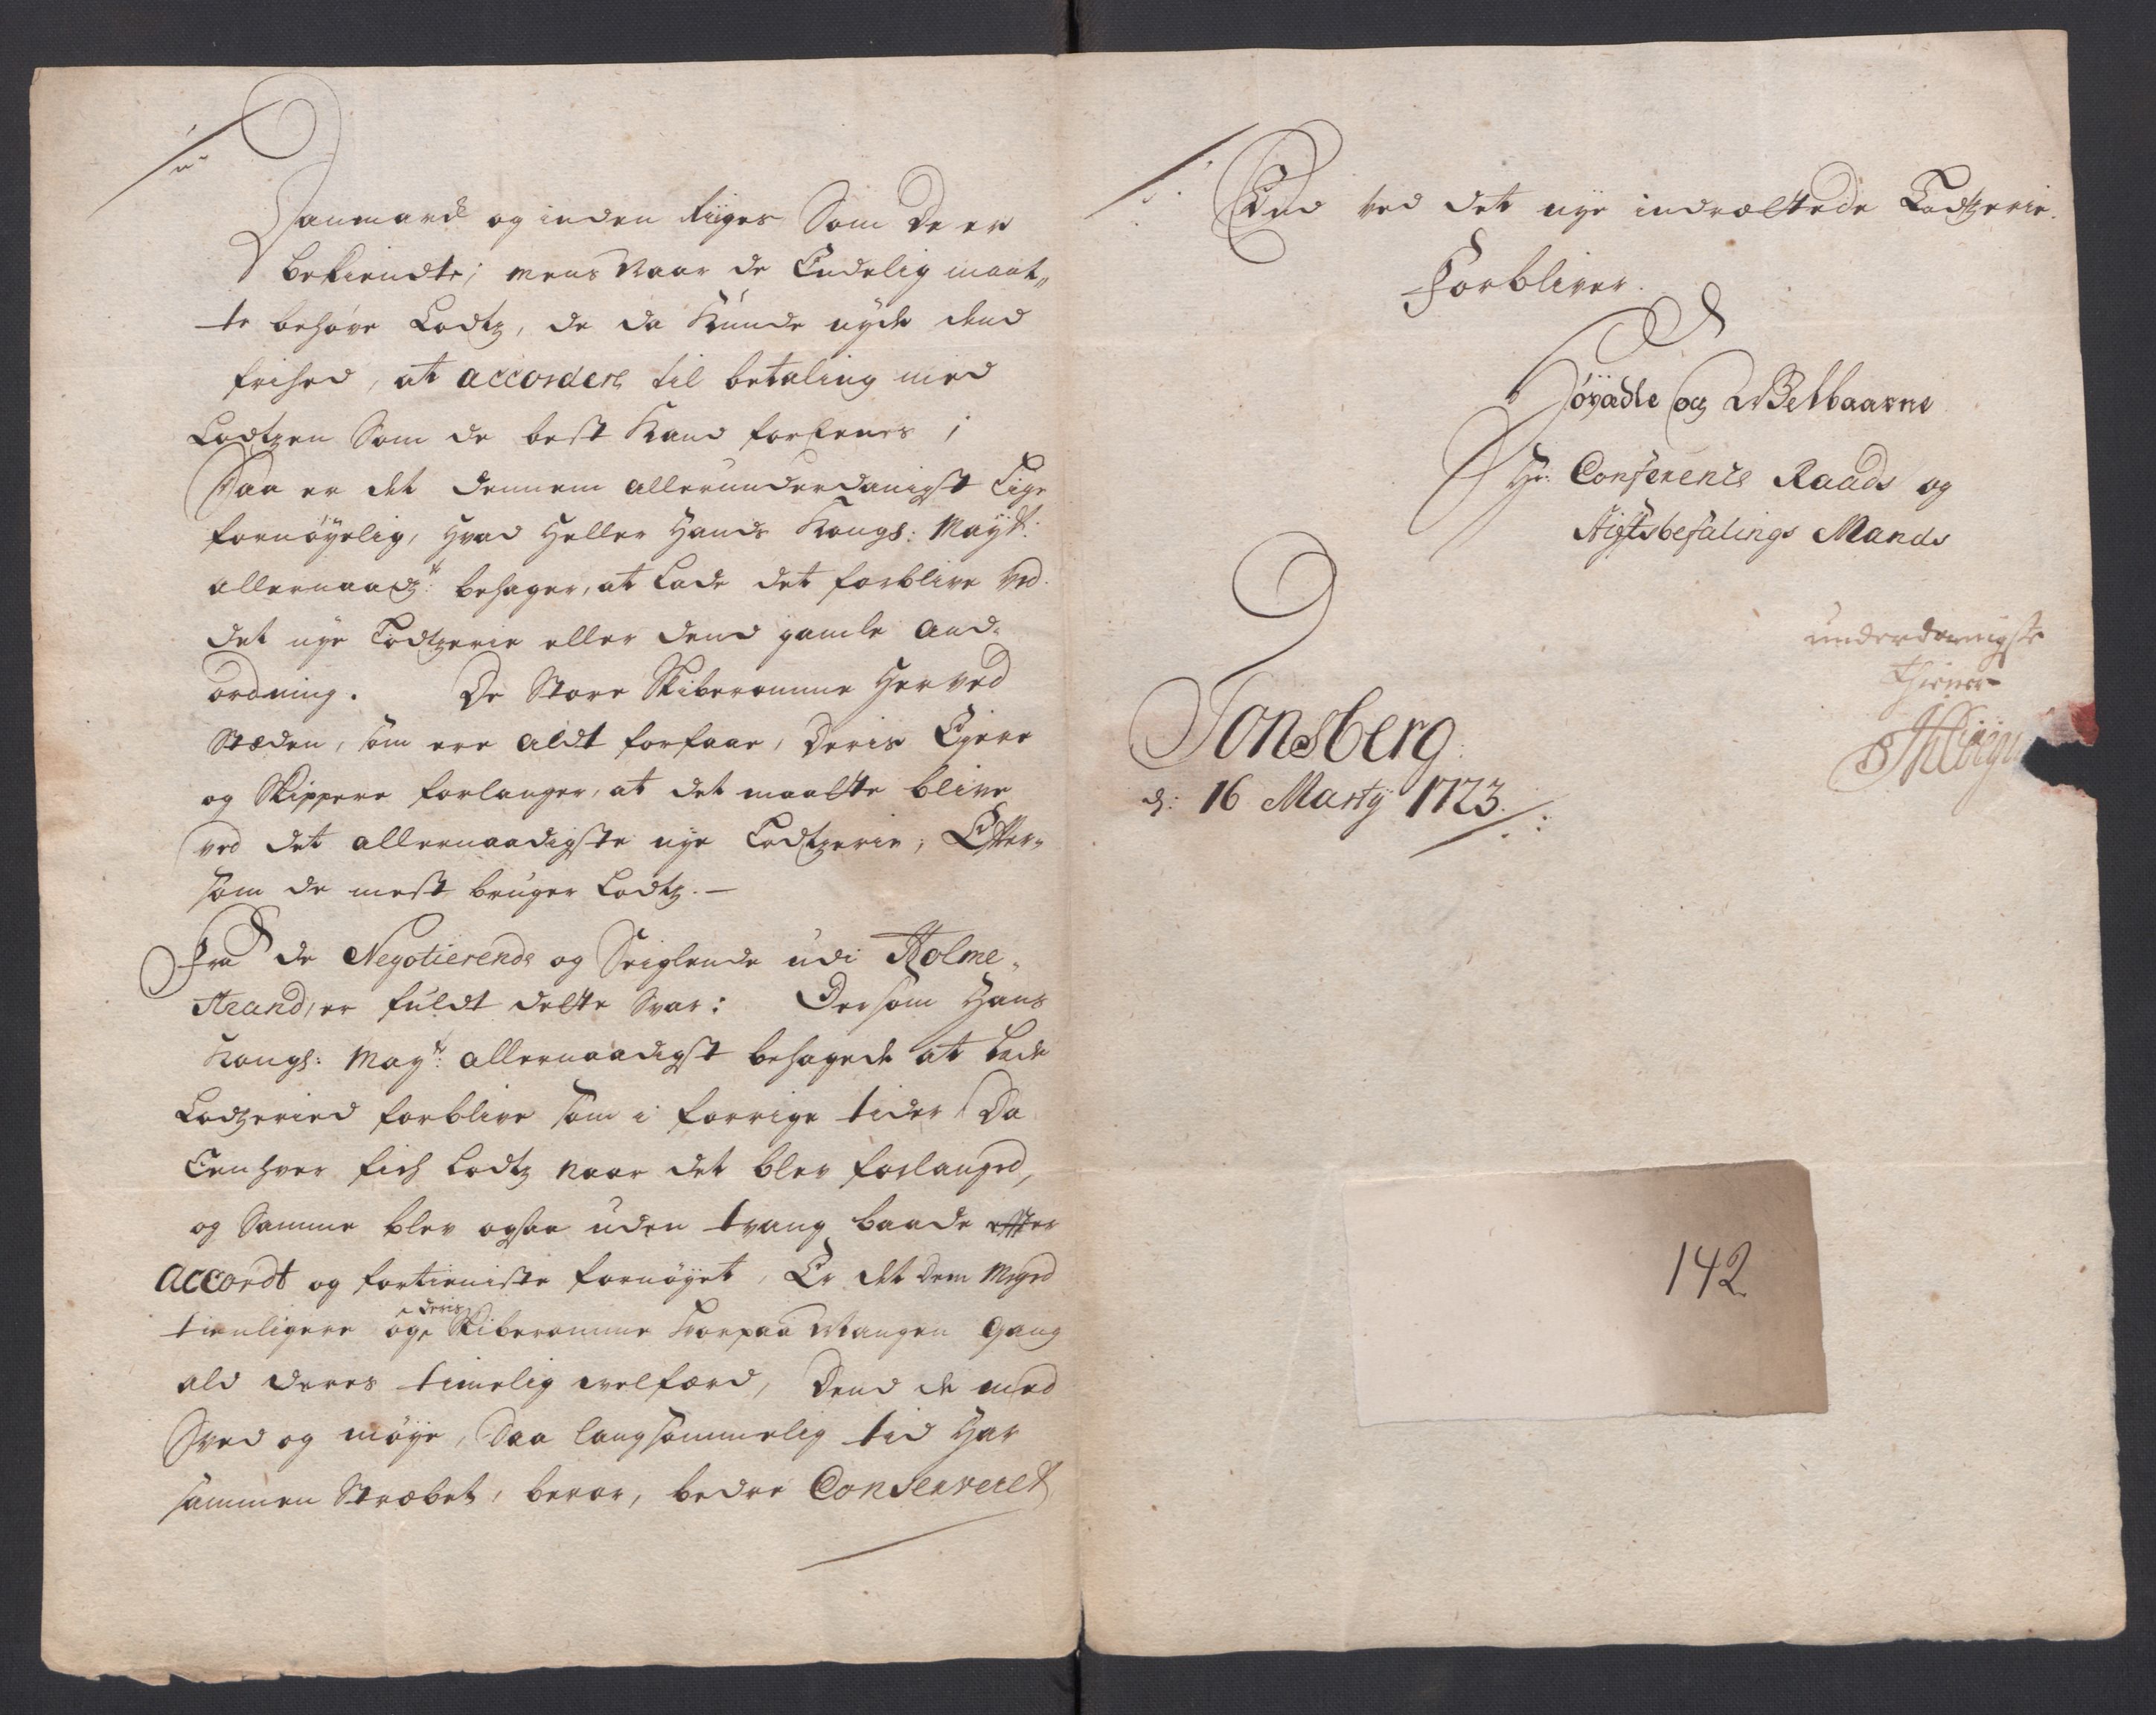 Danmark og inden Riiges Som de er
bekiendte; mens Naar de Endelig maat„
te behøve Lodtz, de da kunde nyde dend
frihed, at accordere til betaling med
Lodtzen Som de best kand foreenes;
Saa er det dennem allerunderdanigst lige
fornøyelig, hvad heller Hands Kongl: Mayst:
allernaadgst: behager, at lade det forblive ved
det nye Lodtzerie eller dend gamle And-
ordning. De Store Skiberomme her ved
Stæden, som ere aldt forfaar, deris Eyere
og Skippere forlanger, at det maatte blive
ved det allernaadigste nye Lodtzerie, Efter-
som de mest bruger Lodtz. —
Fra de Negotierende og Seiglende udi Holme-
strand, er fuldt dette Svar: Dersom Hans
Kongl: Mayt: allernaadigst behagede at lade
Lodzeried forblive som i forrige tider Da
Eenhver fich Lodtz naar det blev forlanged,
og Samme blev ogsaa uden tvang baade efter
Accordt og fortieniste fornøyet, Er det dem Meged
tienligere og deris Skiberomme hvorpaa Mangen Gang
ald deres timelig velfærd, dend de med
Sved og møye, Saa langsommelig tid har
sammen Stræbet, beror, bedre Conserveret
End ved det nye indrættede Lodtzerie.
Forbliver
Høyædle og Velbaarne
Hr: Conference Raads og
Stiftsbefalings Mands
underdanigste
thiener
Tonsberg
d: 16 Marty 1723.
142